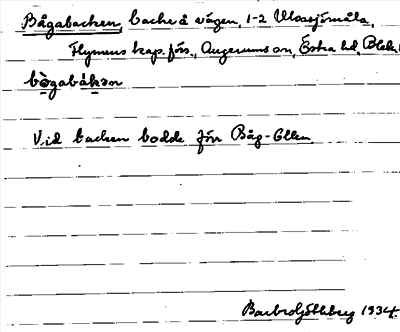 Bågabacken, backe å vägen, 1-2 Ulvasjömåla,
Flymens kap. förs., Augerums sn, Östra hd, Blek.
bågabakən
Vid backen bodde förr Båg-Ellen.
1934.